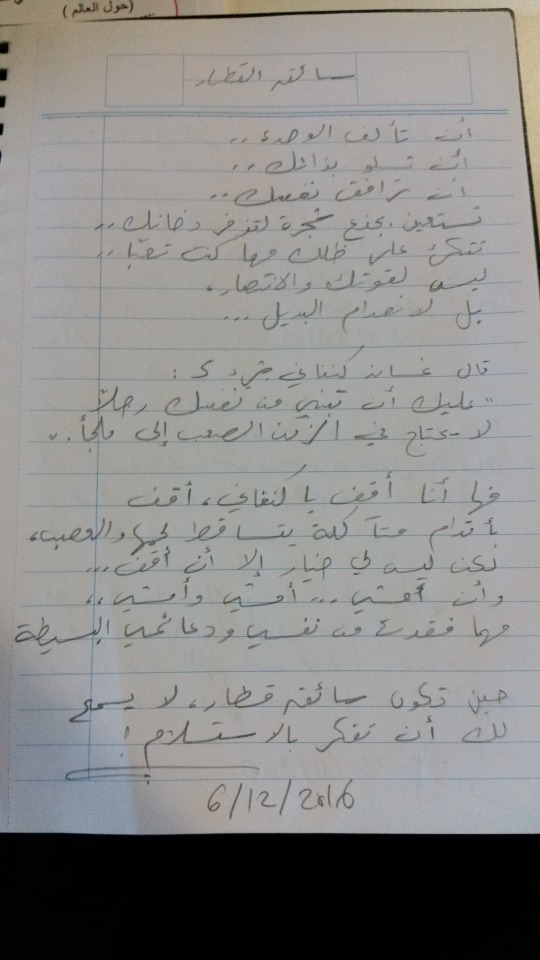 ... (حول العالم)
سائق القطار
أن تألف الوحدة ..
أن تسلو بذاتك ..
أن ترافق نفسك ..
تستعين بجذع شجرة لتزفر دخانك ..
تتكئ على ظلك مهما كنت تعبًا ..
ليس لقوتك والانتصار،
بل لانعدام البديل ...
قال غسان كنفاني :
"عليك أن تبني من نفسك رجلاً
لا يحتاج في الزمن الصعب إلى ملجأ."
فها أنا أقف يا كنفاني، أقف
بأقدام متآكلة يتساقط لحمها والعصب،
لكن ليس لي خيار إلا أن أقف ...
وأن أمشي ... أمشي وأمشي ،،
مهما فقدت من نفسي ودعائمي البسيطة
حين تكون سائق قطار، لا يسمح
لك أن تفكر بالاستسلام !
6/12/2016